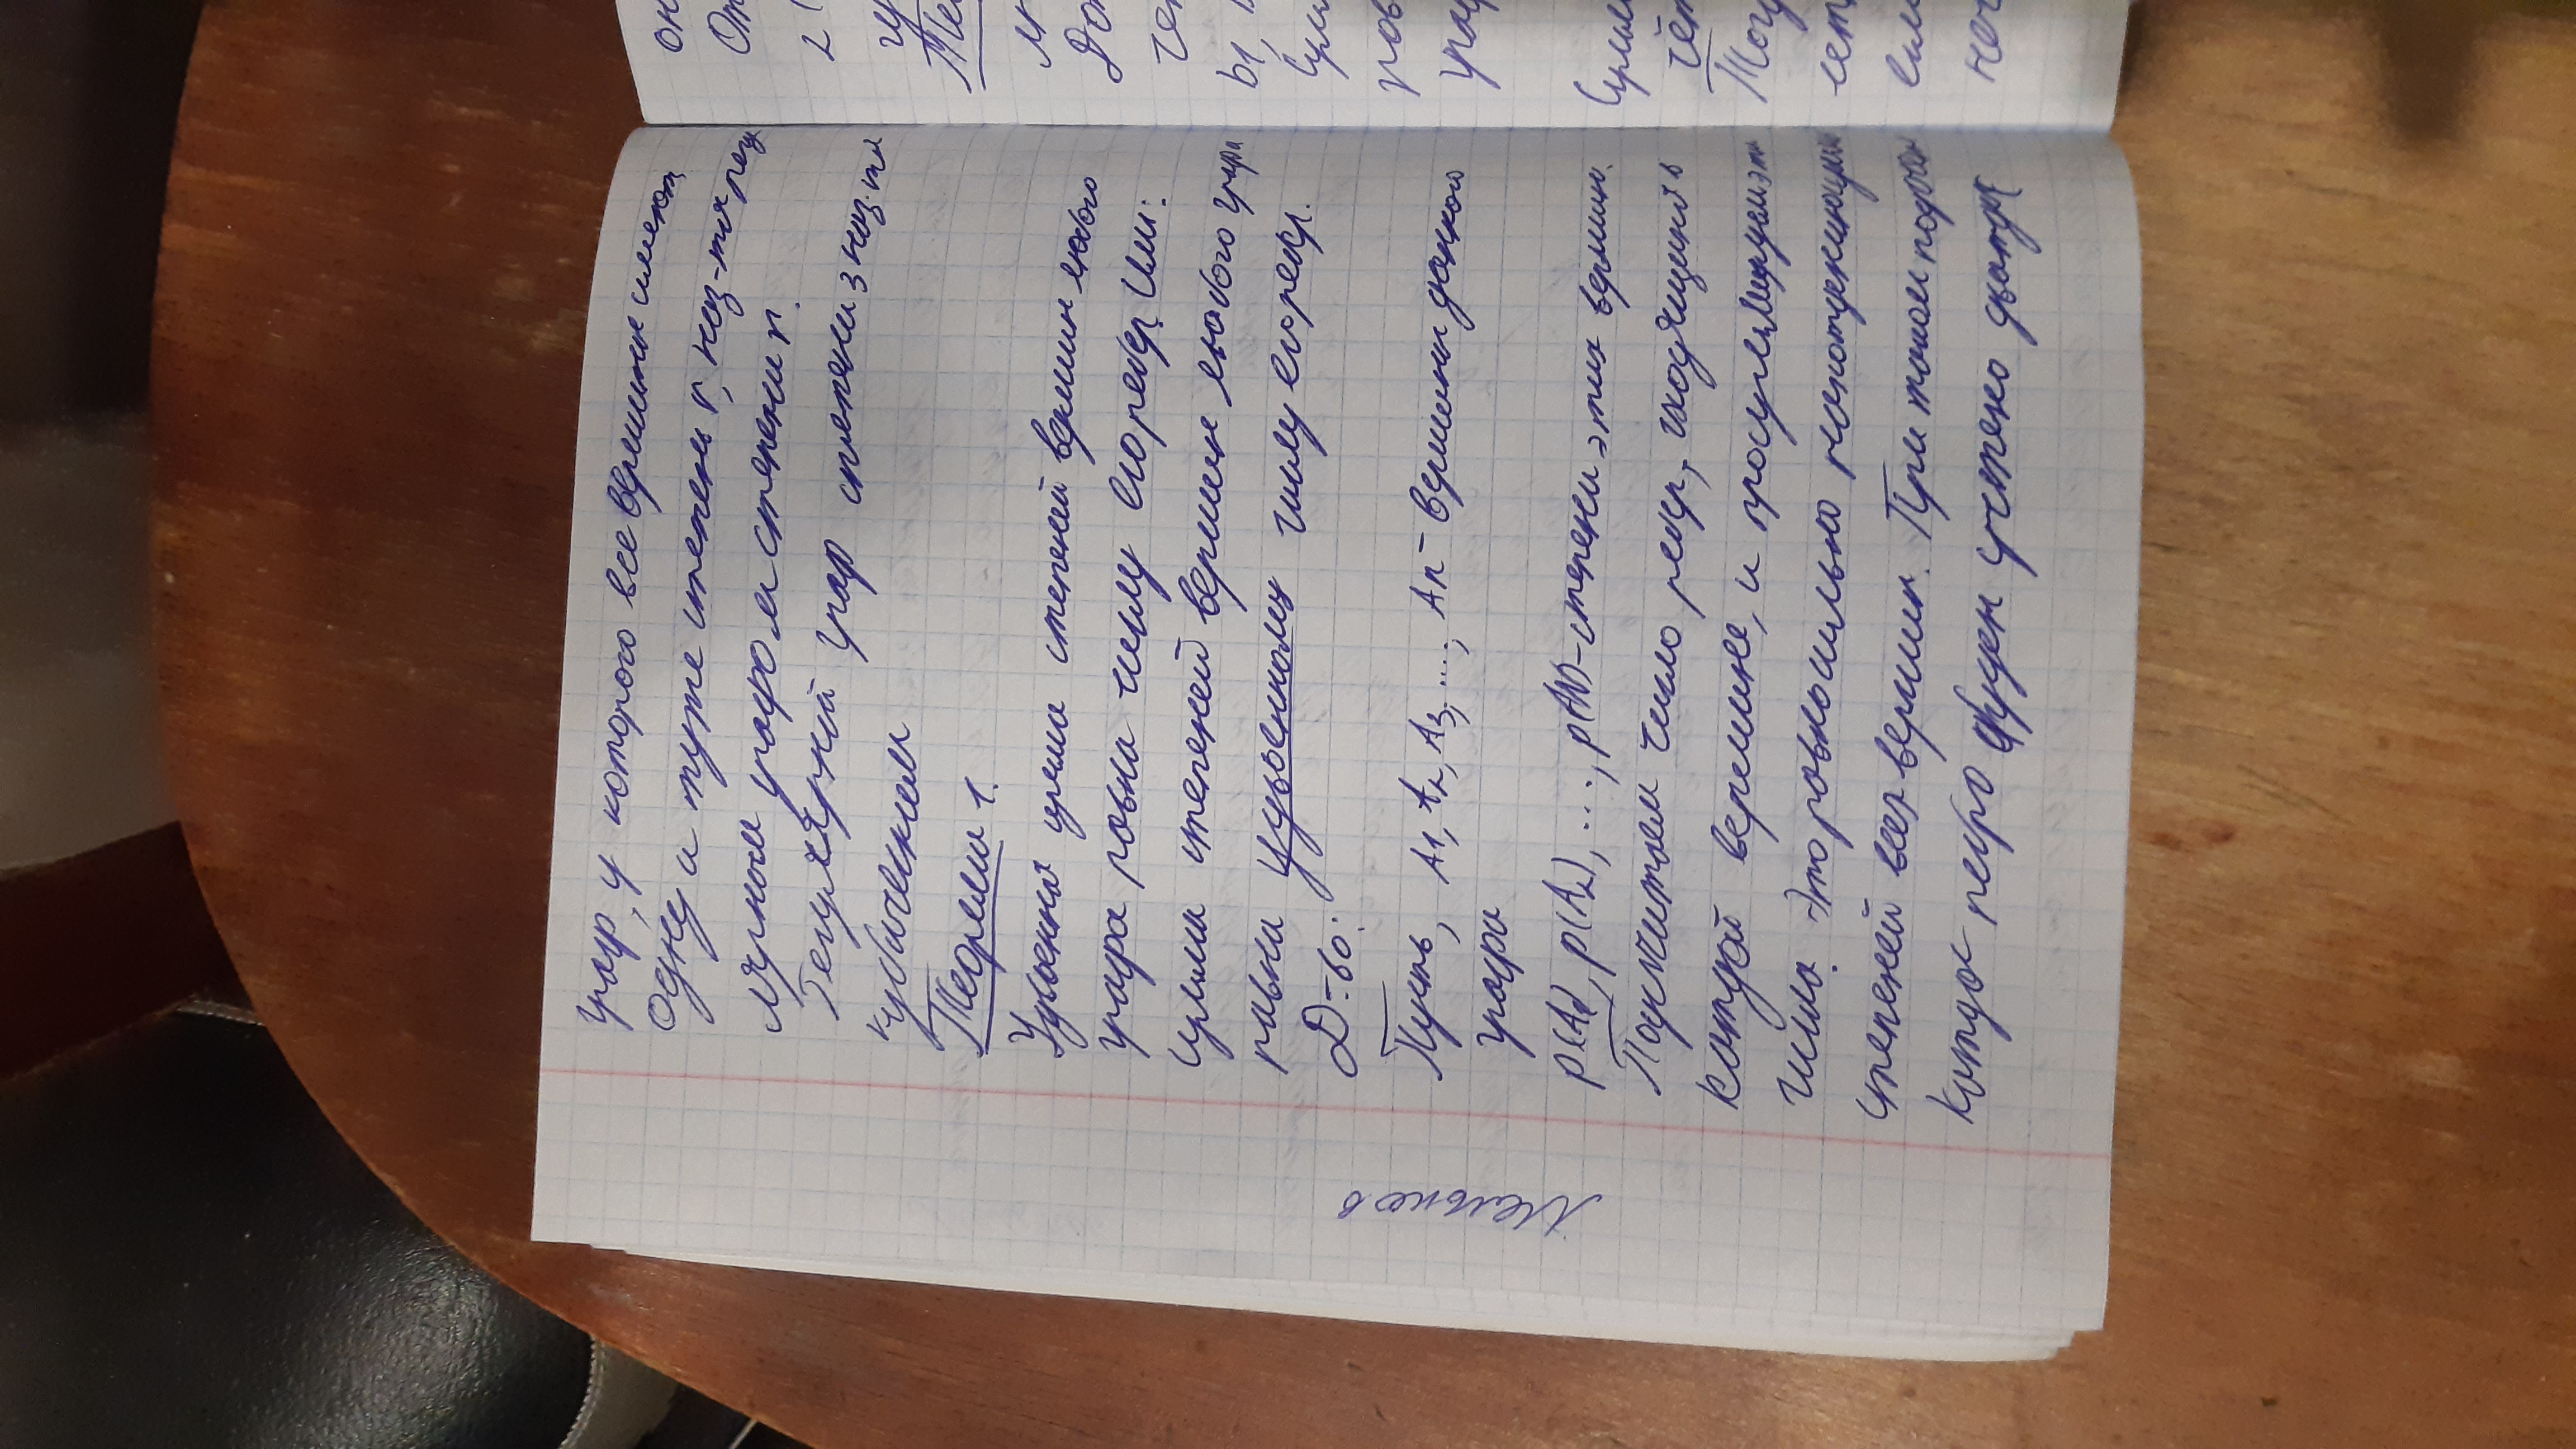 граф, у которого все вершины имеют
одну и туже степень r, наз-тя регу
лярным графом степени r.
Регулярный граф степени 3 наз-тя
кубическим
Теорема 1.
Удвоенная сумма степеней вершин любого
графа равна числу его ребер. Или:
сумма степеней вершин любого графа
равна удвоенному числу его ребер.
Д-во:
Пусть, A1, A2, A3, ...., An - вершины данного
графа
p(A1), p(A2), ..., p(AN) - степени этих вершин.
Подсчитаем число ребер, сходящихся в
каждой вершине, и просуммируем эти
числа. Это равносильно нахождению суммы
степеней всех вершин. При таком подсчете
каждое ребро будет учтено дважды
Мельнов
он
От
2 (
гу
Те
м
До
чет
b1,
Сумм
рав
граф
Сумм
чёт
Тогд
неч